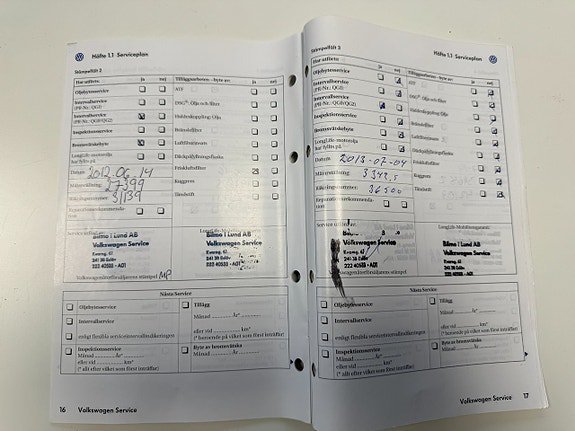 Häfte 1.1 Serviceplan
Stämpelfält 2
Har utförts: ja nej Tilläggsarbeten - byte av: ja nej
Oljebytesservice ATF
Intervallservice DSG®: Olja och filter
(PR-Nr.: QG1)
Intervallservice Haldexkoppling: Olja
(PR-Nr.: QG0/QG2)
Inspektionsservice Bränslefilter
Bromsvätskebyte Luftfilterinsats
LongLife-motorolja
har fyllts på
Datum: 2012-06-14 Friskluftsfilter
Mätarställning: 27399 Kuggrem
Mätarställning
31139 Tändstift
Reparationsrekommenda-
tion
Service utförd
Bilmo i Lund AB
Volkswagen Service
241 38 Eslöv
222 40533 - A01
Volkswagenåterförsäljarens stämpel MP
Nästa Service
Oljebytesservice Tillägg
Intervallservice Månad År*
eller vid km*
enligt flexibla serviceintervallindikeringen (* beroende på vilket som först inträffar)
Inspektionsservice Byte av bromsvätska
Månad År* Månad År
eller vid km*
(* allt efter vilket som först inträffar)
16 Volkswagen Service
Häfte 1.1 Serviceplan
Stämpelfält 3
Har utförts: ja nej Tilläggsarbeten - byte av: ja nej
Oljebytesservice ATF
Intervallservice DSG®: Olja och filter
(PR-Nr.: QG1)
Intervallservice Haldexkoppling: Olja
(PR-Nr.: QG0/QG2)
Inspektionsservice Bränslefilter
Bromsvätskebyte Luftfilterinsats
LongLife-motorolja Däckpåfyllningsflaska
har fyllts på
Datum: 2013-07-04 Friskluftsfilter
Mätarställning: Kuggrem
36500 Tändstift
Reparationsrekommenda-
tion
Service utförd LongLife-Mobilitetsgaranti
Bilmo i Lund AB
Volkswagen Service
241 38 Eslöv
222 40533 - A01
Volkswagenåterförsäljarens stämpel
Nästa Service
Oljebytesservice Tillägg
Intervallservice Månad År*
eller vid km*
enligt flexibla serviceintervallindikeringen (* beroende på vilket som först inträffar)
Inspektionsservice Byte av bromsvätska
Månad År* Månad År
eller vid km*
(* allt efter vilket som först inträffar)
Volkswagen Service 17